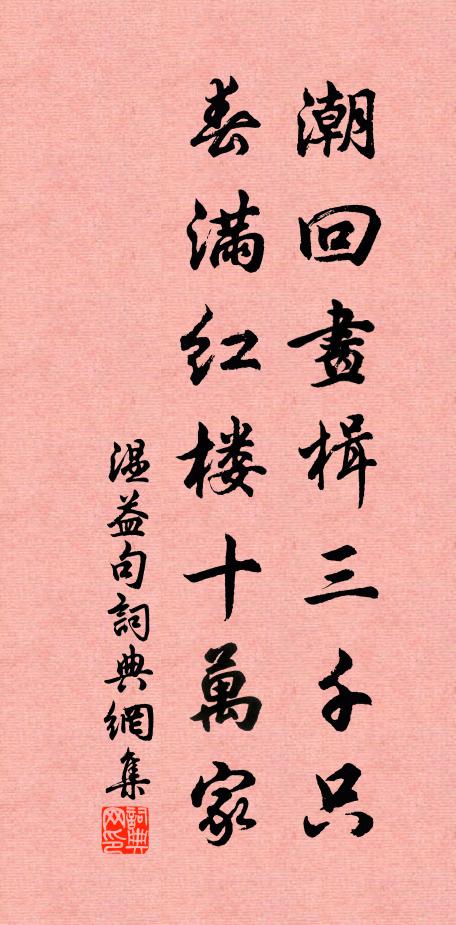 潮回畫楫三千只
春滿红楼十萬家
温益句詞典網集
詞典网印